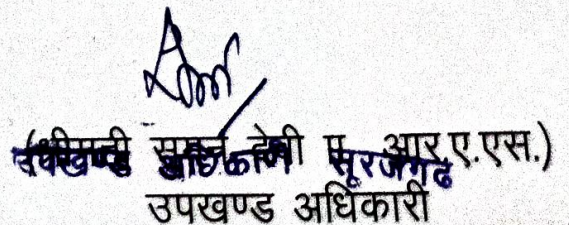 (श्रीमती सुमन देवी आर.ए.एस.)
उपखण्ड अधिकारी सूरजगढ
उपखण्ड अधिकारी